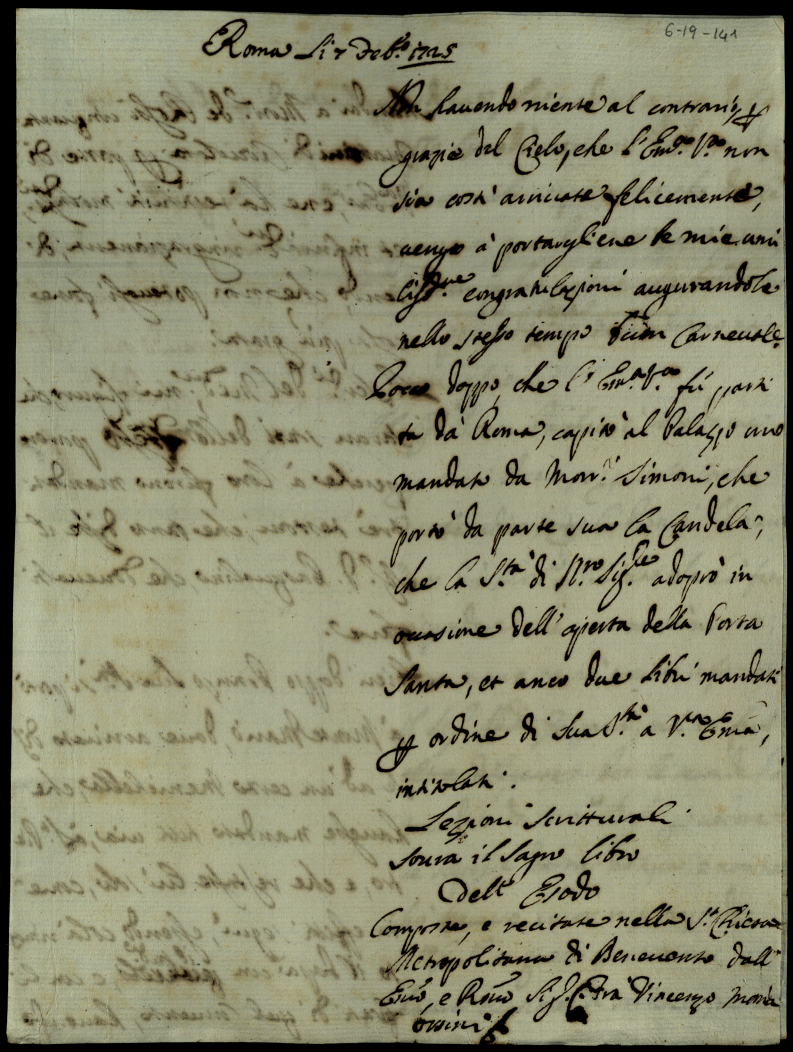 6-19-141
Roma li 7 Feb.º 1725
Non havendo niente al contrario, p
grazie del Cielo, che l'Em.ª V.ª non
sia costì arrivata felicemente,
vengo à portargliene le mie umi
liss.me congratulazioni augurandole
nello stesso tempo buon Carnevale.
Poco doppo, che l'Em.ª V.ª fù parti
ta da Roma, capitò al Palazzo uno
mandato da Mon.r Simoni, che
portò da parte sua la Candela,
che la S.tà di N.ro Sig.re adoprò in
occasione dell'aperta della Porta
Santa, et anco due libri mandati
p ordine di Sua S.tà a V.ra Emã,
intitolati.
Lezioni Scritturali
sovra il Sagro libro
dell' Esodo
Composte, e recitate nella S.ta Chiesa
Metropolitana di Benevento dall'
Emo, e Rmo Sig.r Fra Vincenzo Maria
Orsini